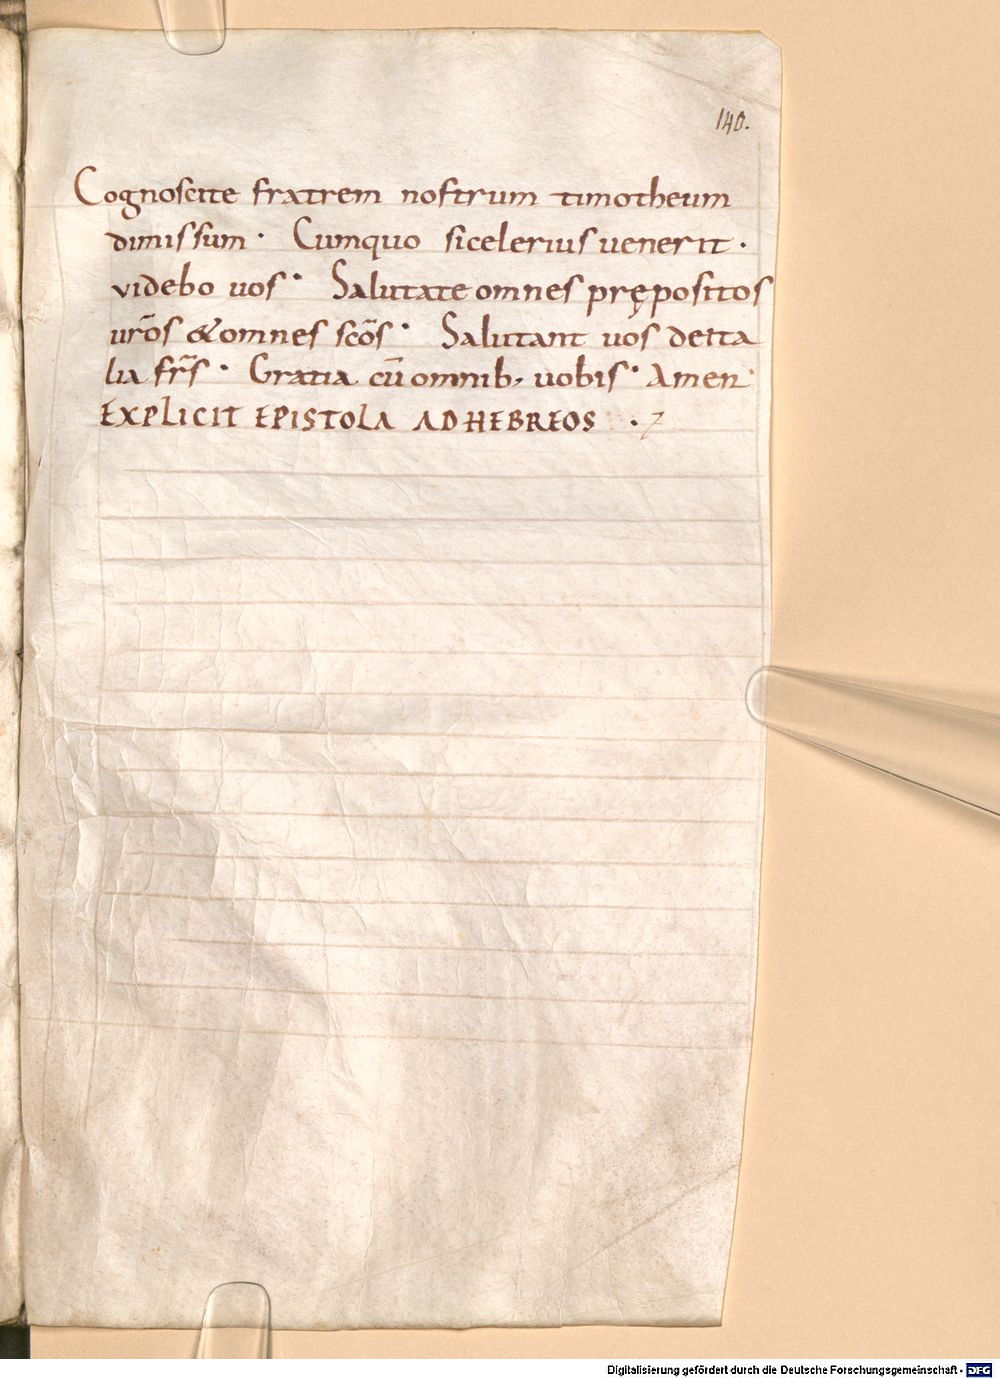 140.
Cognoscite fratrem nostrum timotheum
dimissum · Cumquo sicelerius uenerit ·
videbo uos · Salutate omnes prępositos
ur̄os & omnes sc̄os · Salutant uos deita
lia fr̄s · Gratia cū omnib; uobis · Amen ·
EXPLICIT EPISTOLA AD HEBREOS · 7
Digitalisierung gefördert durch die Deutsche Forschungsgemeinschaft - DFG